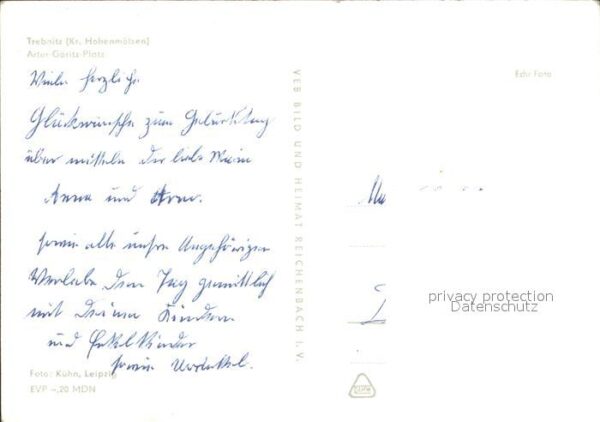 Trebnitz (Kr. Hohenmölsen)
Artur-Göritz-Platz
Echt Foto
Viele herzliche
Glückwünsche zum Geburtstag
über mitteln der liebe
Anna und
sowie alle unsre Angehörigen
Verlebe den Tag gemütlich
mit Deinen Kindern
und Enkelkinder
sowie Urenkel.
Foto: Kühn, Leipzig
EVP –,20 MDN
VEB BILD UND HEIMAT REICHENBACH I. V.
privacy protection
Datenschutz